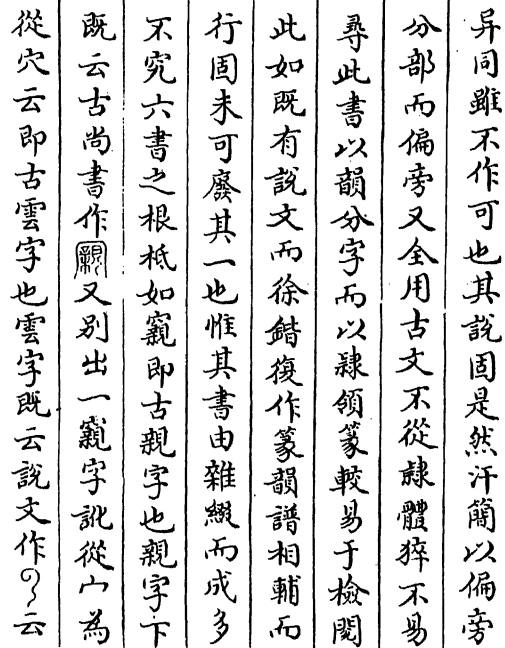 异同雖不作可也其說固是然汗蕳以偏旁
分部而偏旁又全用古文不從隷體猝不易
尋此書以韻分字而以隷領篆較易于檢閱
此如既有說文而徐鍇復作篆韻譜相輔而
行固未可廢其一也惟其書由雜綴而成多
不究六書之根柢如窺即古親字也親字下
既云古尚書作又别出一竀字訛從宀為
從穴云即古雲字也雲字既云說文作云